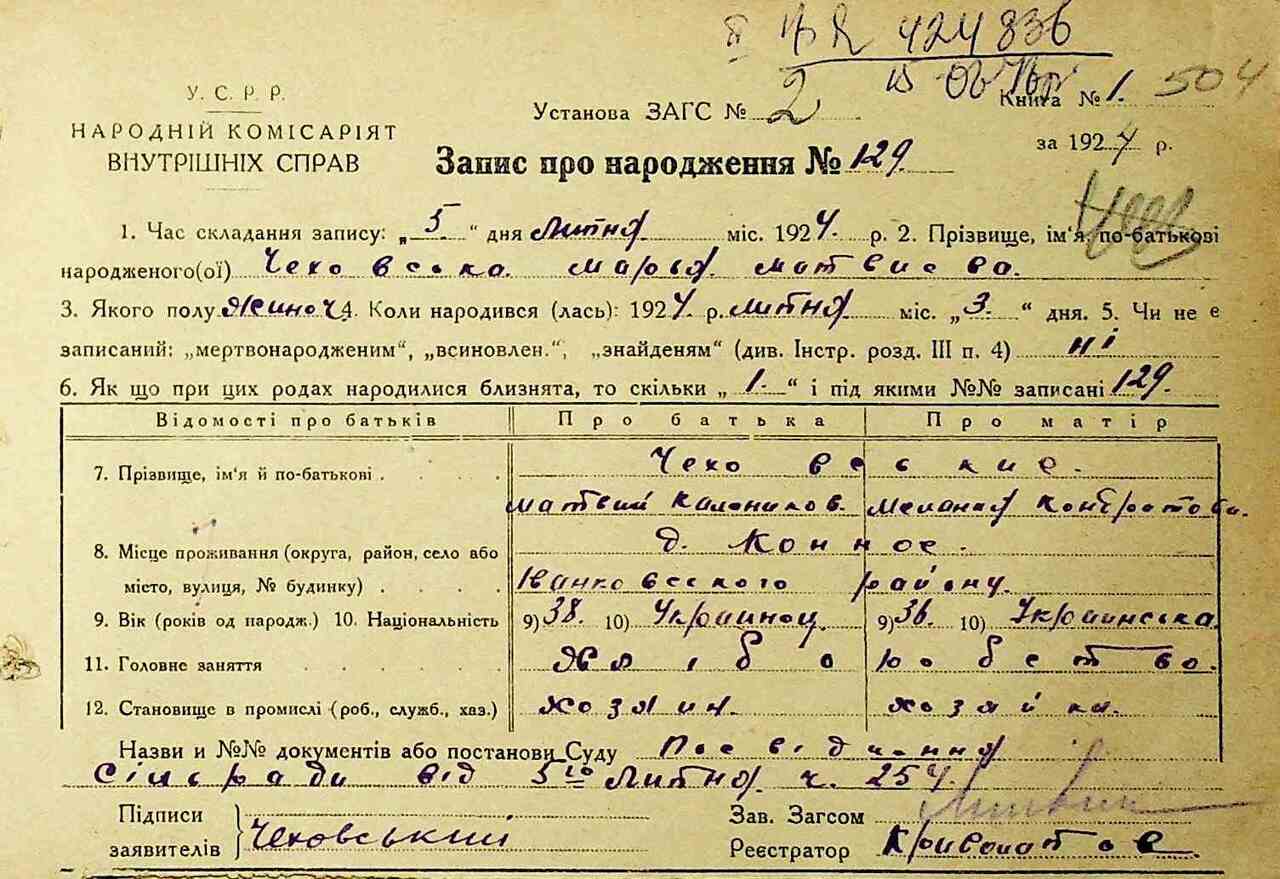 424836
У. С. Р. Р.
НАРОДНІЙ КОМІСАРІЯТ
ВНУТРІШНІХ СПРАВ
Установа ЗАГС № 2
Книга № 1. 504
за 1924 р.
Запис про народження № 129.
1. Час складання запису: „ 5 “ дня Литня міс. 1924. р. 2. Прізвище, ім'я по-батькові
народженого(ої) Чеховська Марья Матвиева.
3. Якого полу Жиноч. 4. Коли народився (лась): 1924 р. Литня міс. „ 3. “ дня. 5. Чи не є
записаний: „мертвонародженим“, „всиновлен.“, „знайденям“ (див. Інстр. розд. III п. 4) ні
6. Як що при цих родах народилися близнята, то скільки „ 1. “ і під якими №№ записані 129.
Відомості про батьків Про батька Про матір
7. Прізвище, ім'я й по-батькові . . . . Чеховские.
Матвий Калеников. Мелания Контратова.
8. Місце проживання (округа, район, село або д. Конное.
місто, вулиця, № будинку) . . . . Іванковского району.
9. Вік (років од народж.) 10. Національність 9) 38. 10) Украинец. 9) 36. 10) Украинська.
11. Головне заняття . . . . . Хлібо робство.
12. Становище в промислі (роб., служб., хаз.) хозяин. хозяйка.
Назви и №№ документів або постанови Суду Посвідчення
Сільради від 5го Литня ч. 254.
Підписи
заявителів Чеховський
Зав. Загсом
Реєстратор